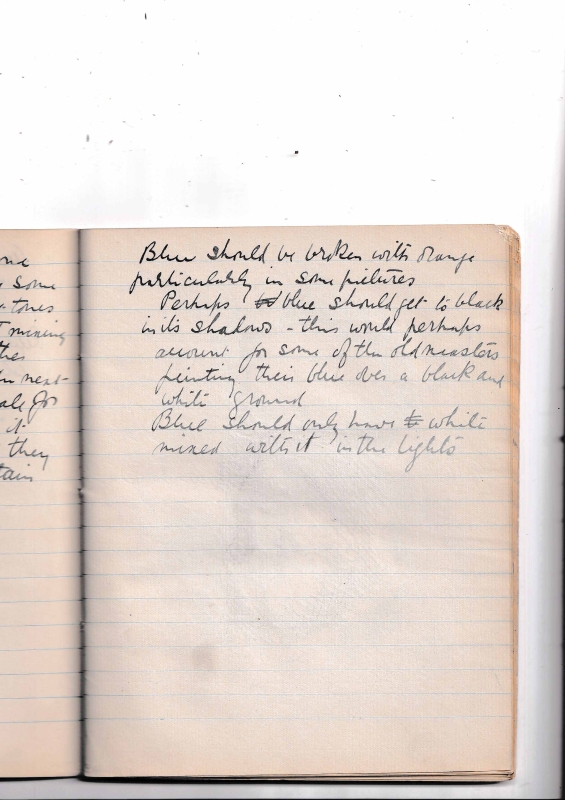 ne
some
tones
mixing
the next
ale for
it
they
tain
Blue should be broken with orange
particularly in some pictures
Perhaps blue should get to black
in its shadows - this would perhaps
account for some of the old masters
painting their blue over a black and
white ground
Blue should only have white
mixed with it in the lights